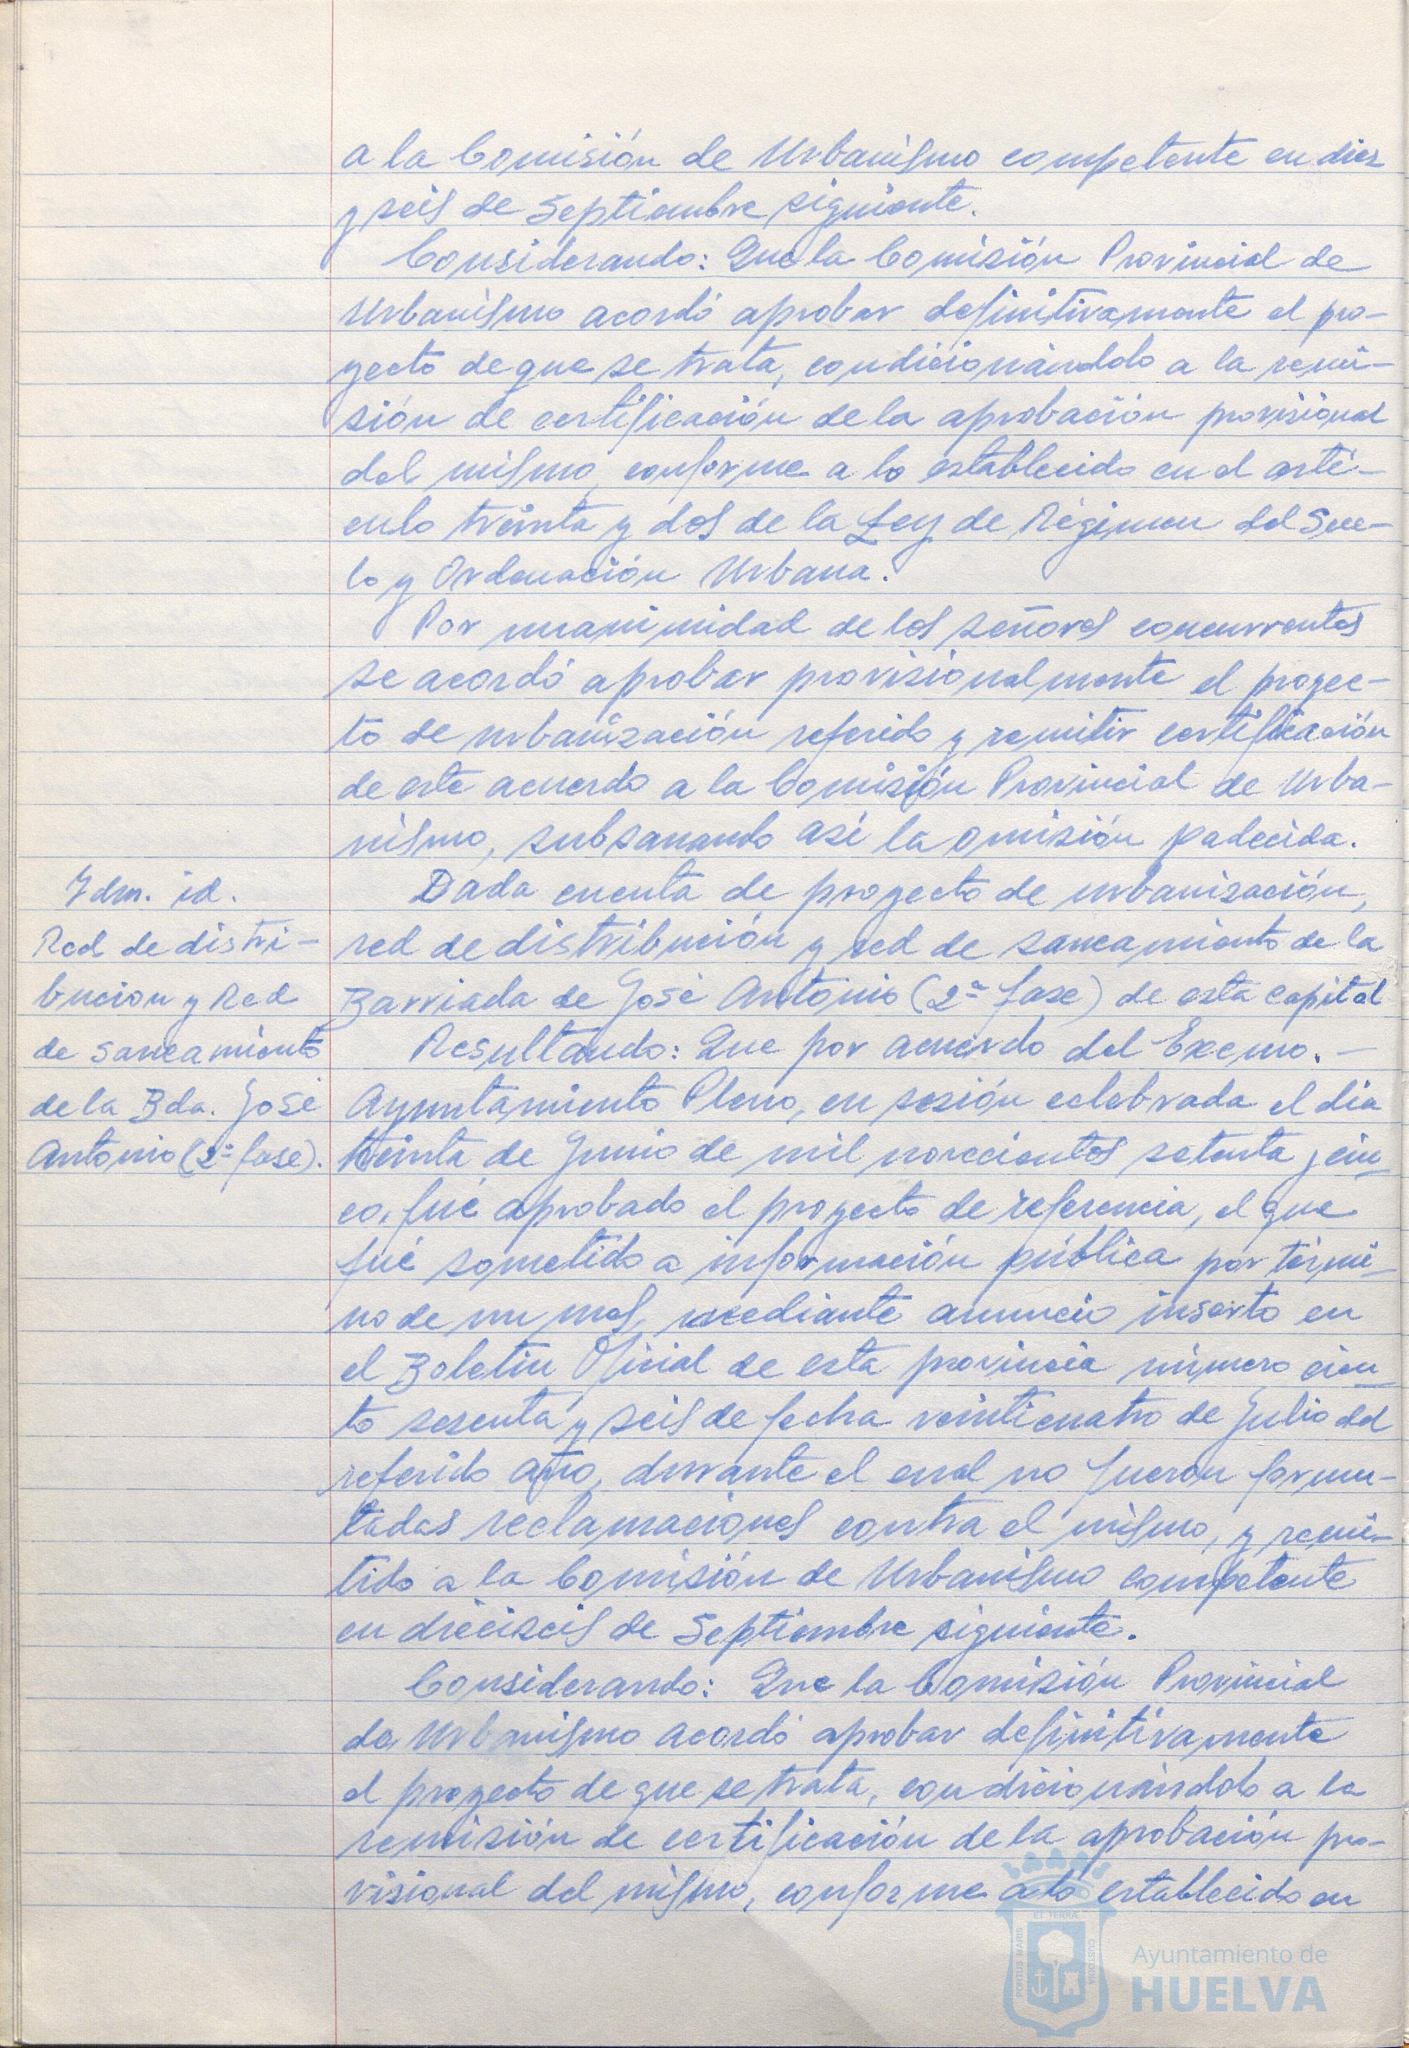 a la Comisión de Urbanismo competente en diez
y seis de Septiembre siguiente.
Considerando: Que la Comisión Provincial de
Urbanismo acordó aprobar definitivamente el pro-
yecto de que se trata, condicionándolo a la remi-
sión de certificación de la aprobación provisional
del mismo, conforme a lo establecido en el artí-
culo treinta y dos de la Ley de Régimen del Sue-
lo y Ordenación Urbana.
Por unanimidad de los señores concurrentes
se acordó aprobar provisionalmente el proyec-
to de urbanización referido y remitir certificación
de este acuerdo a la Comisión Provincial de Urba-
nismo, subsanando así la omisión padecida.
Idm. id.
Red de distri-
bucion y Red
de saneamiento
de la Bda. José
Antonio (2ª fase).
Dada cuenta de proyecto de urbanización,
red de distribución y red de saneamiento de la
Barriada de José Antonio (2ª fase) de esta capital
Resultando: Que por acuerdo del Excmo. -
Ayuntamiento Pleno, en sesión celebrada el dia
treinta de Junio de mil novecientos setenta y cin-
co, fué aprobado el proyecto de referencia, el que
fué sometido a información pública por térmi-
no de un mes, mediante anuncio inserto en
el Boletin Oficial de esta provincia número cien-
to sesenta y seis de fecha veinticuatro de Julio del
referido año, durante el cual no fueron formu-
ladas reclamaciones contra el mismo, y remi-
tido a la Comisión de Urbanismo competente
en dieciseis de Septiembre siguiente.
Considerando: Que la Comisión Provincial
de Urbanismo acordó aprobar definitivamente
el proyecto de que se trata, condicionándolo a la
remisión de certificación de la aprobación pro-
visional del mismo, conforme a lo establecido en
PORTUS MARIS
ET TERRA
CUSTODIA
Ayuntamiento de
HUELVA